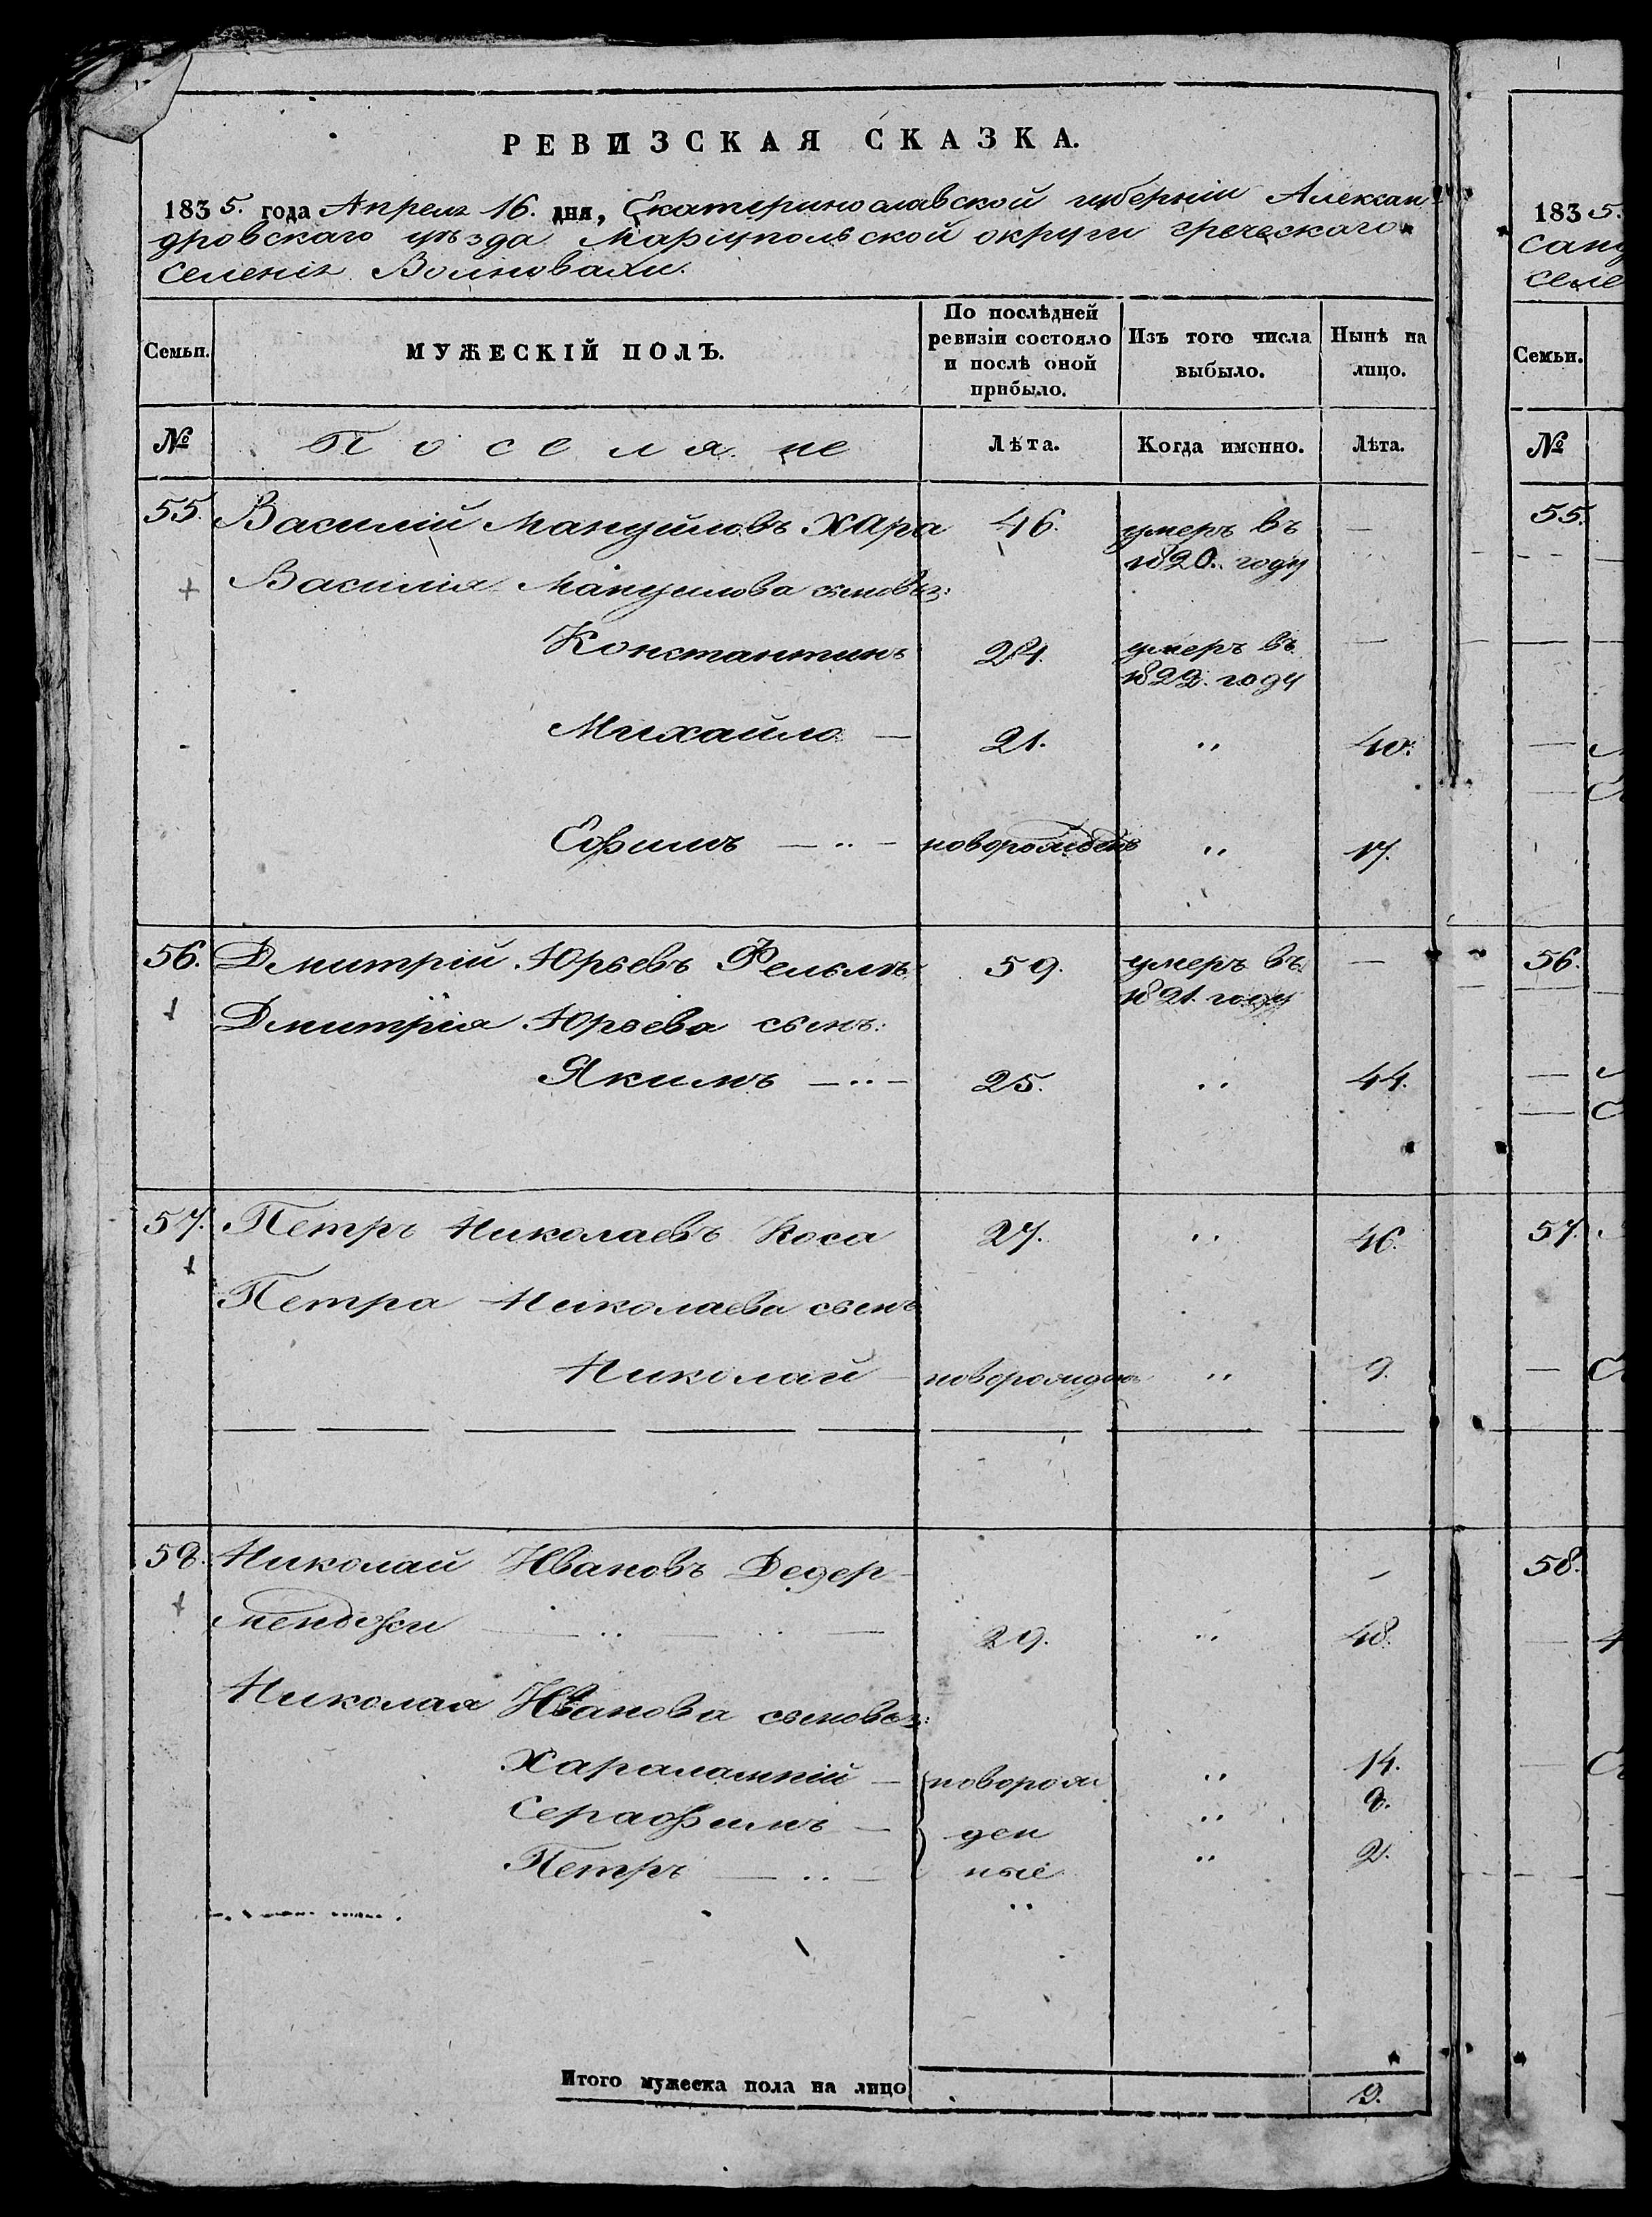 РЕВИЗСКАЯ СКАЗКА.
1835. года Апреля 16. дня, Екатеринославской губерніи Александ
дровскаго уѣзда Маріупольской округи греческаго
селенія Волновахи.
Семьи. МУЖЕСКІЙ ПОЛЪ. По послѣдней ревизіи состояло и послѣ оной прибыло. Изъ того числа выбыло. Нынѣ на лицо.
№ Поселяне Лѣта. Когда именно. Лѣта.
55. Василій Мануйловъ Хара 46. умеръ въ 1820. году —
Василія Мануилова сыновья:
Константинъ 24. умеръ въ 1822. году —
Михайло — 21. „ 40.
Ефимъ — „ — новорожденъ „ 17.
56. Дмитрій Юрьевъ 59. умеръ въ 1821. году —
Дмитрія Юрьева сынъ:
Якимъ — „ — 25. „ 44.
57. Петръ Николаевъ Коса 27. „ 46.
Петра Николаева сынъ
Николай — новорожденъ „ 9.
58. Николай Ивановъ Дедер- —
менджи — „ — „ — 29. „ 48.
Николая Иванова сыновья:
Харалампій — новорож „ 14.
Серафимъ — ден „ 8.
Петръ — „ — ные „ 2.
Итого мужеска пола на лицо 9.
1835.
санд
селе
Семьи.
№
55.
56.
57.
58.